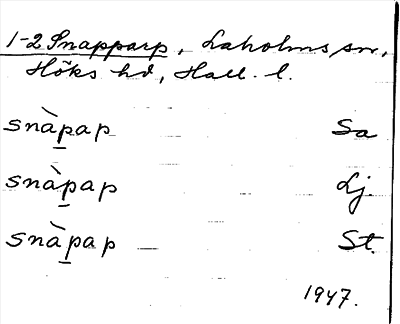 1-2 Snapparp, Laholms sn,
Höks hd, Hall. l.
snàp̲ap Sa
snàp̲ap Lj.
snàp̲ap St.
1947.